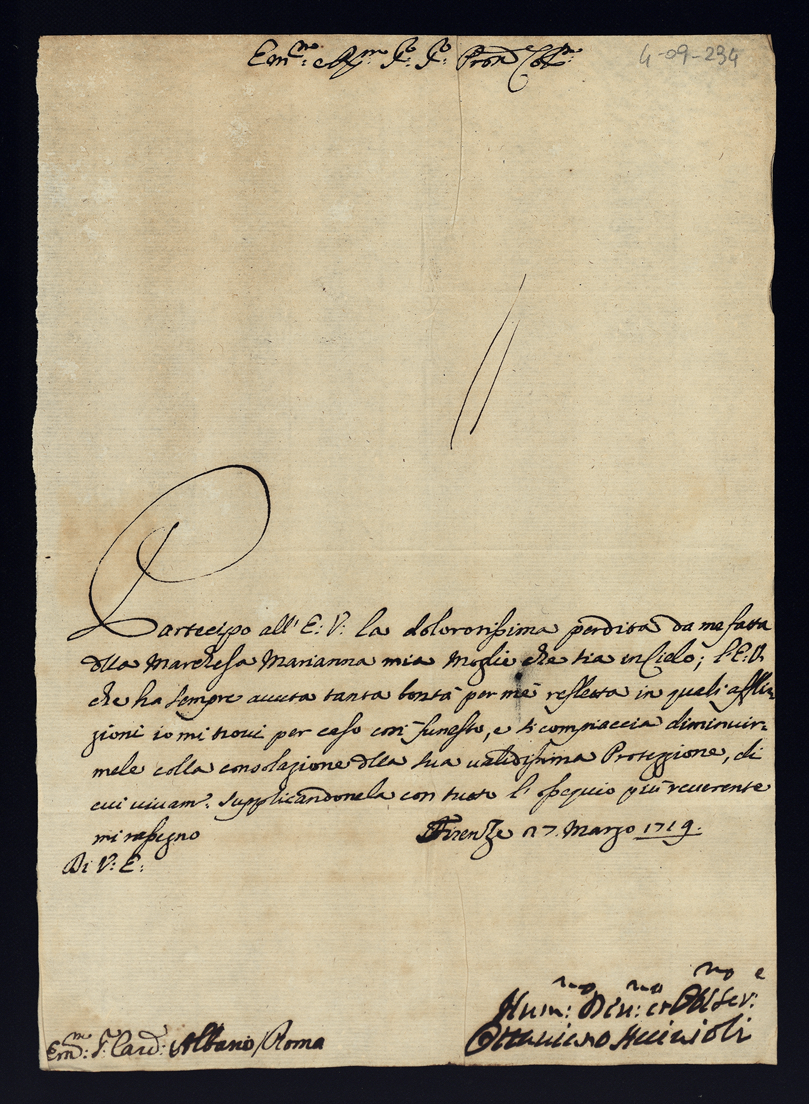 Em:mo e R:mo S:re S:re Pron Col:mo
4-09-234
Partecipo all' E: V: la dolorosissima perdita da me fatta
dlla Marchesa Marianna mia Moglie che sia in Cielo; l'E: V:
che ha sempre avuta tanta bontà per me rifletta in quali afflit-
zioni io mi trovi per caso così funesto, e si compiaccia diminuir-
mele colla consolazione dlla sua validissima Protezzione, di
cui vivam:e supplicandonela con tutto l'ossequio più reverente
mi rassegno
Firenze 27. Marzo 1719.
Di V: E:
Hum:mo Div:mo et Obb:mo Ser:e
Ottaviano Acciaioli
Em:mo S: Card: Albano / Roma